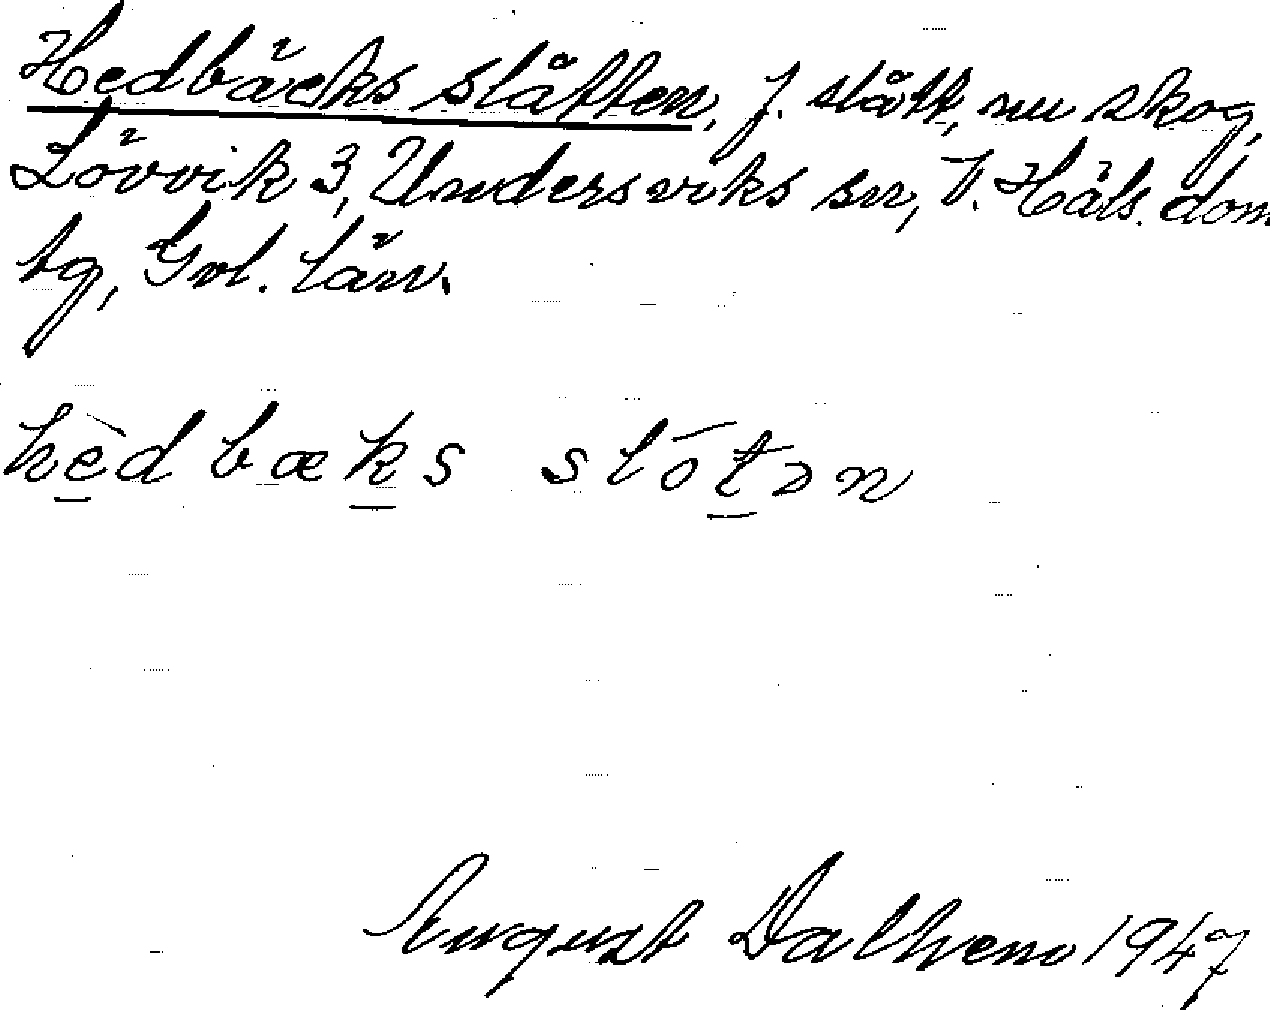 Hedbäcks slåtten, f. slått, nu skog,
Lövvik 3, Undersviks sn, V. Häls. dom
tg, Gvl. län.
hèdbæks slōtən
August Dalhem 1947